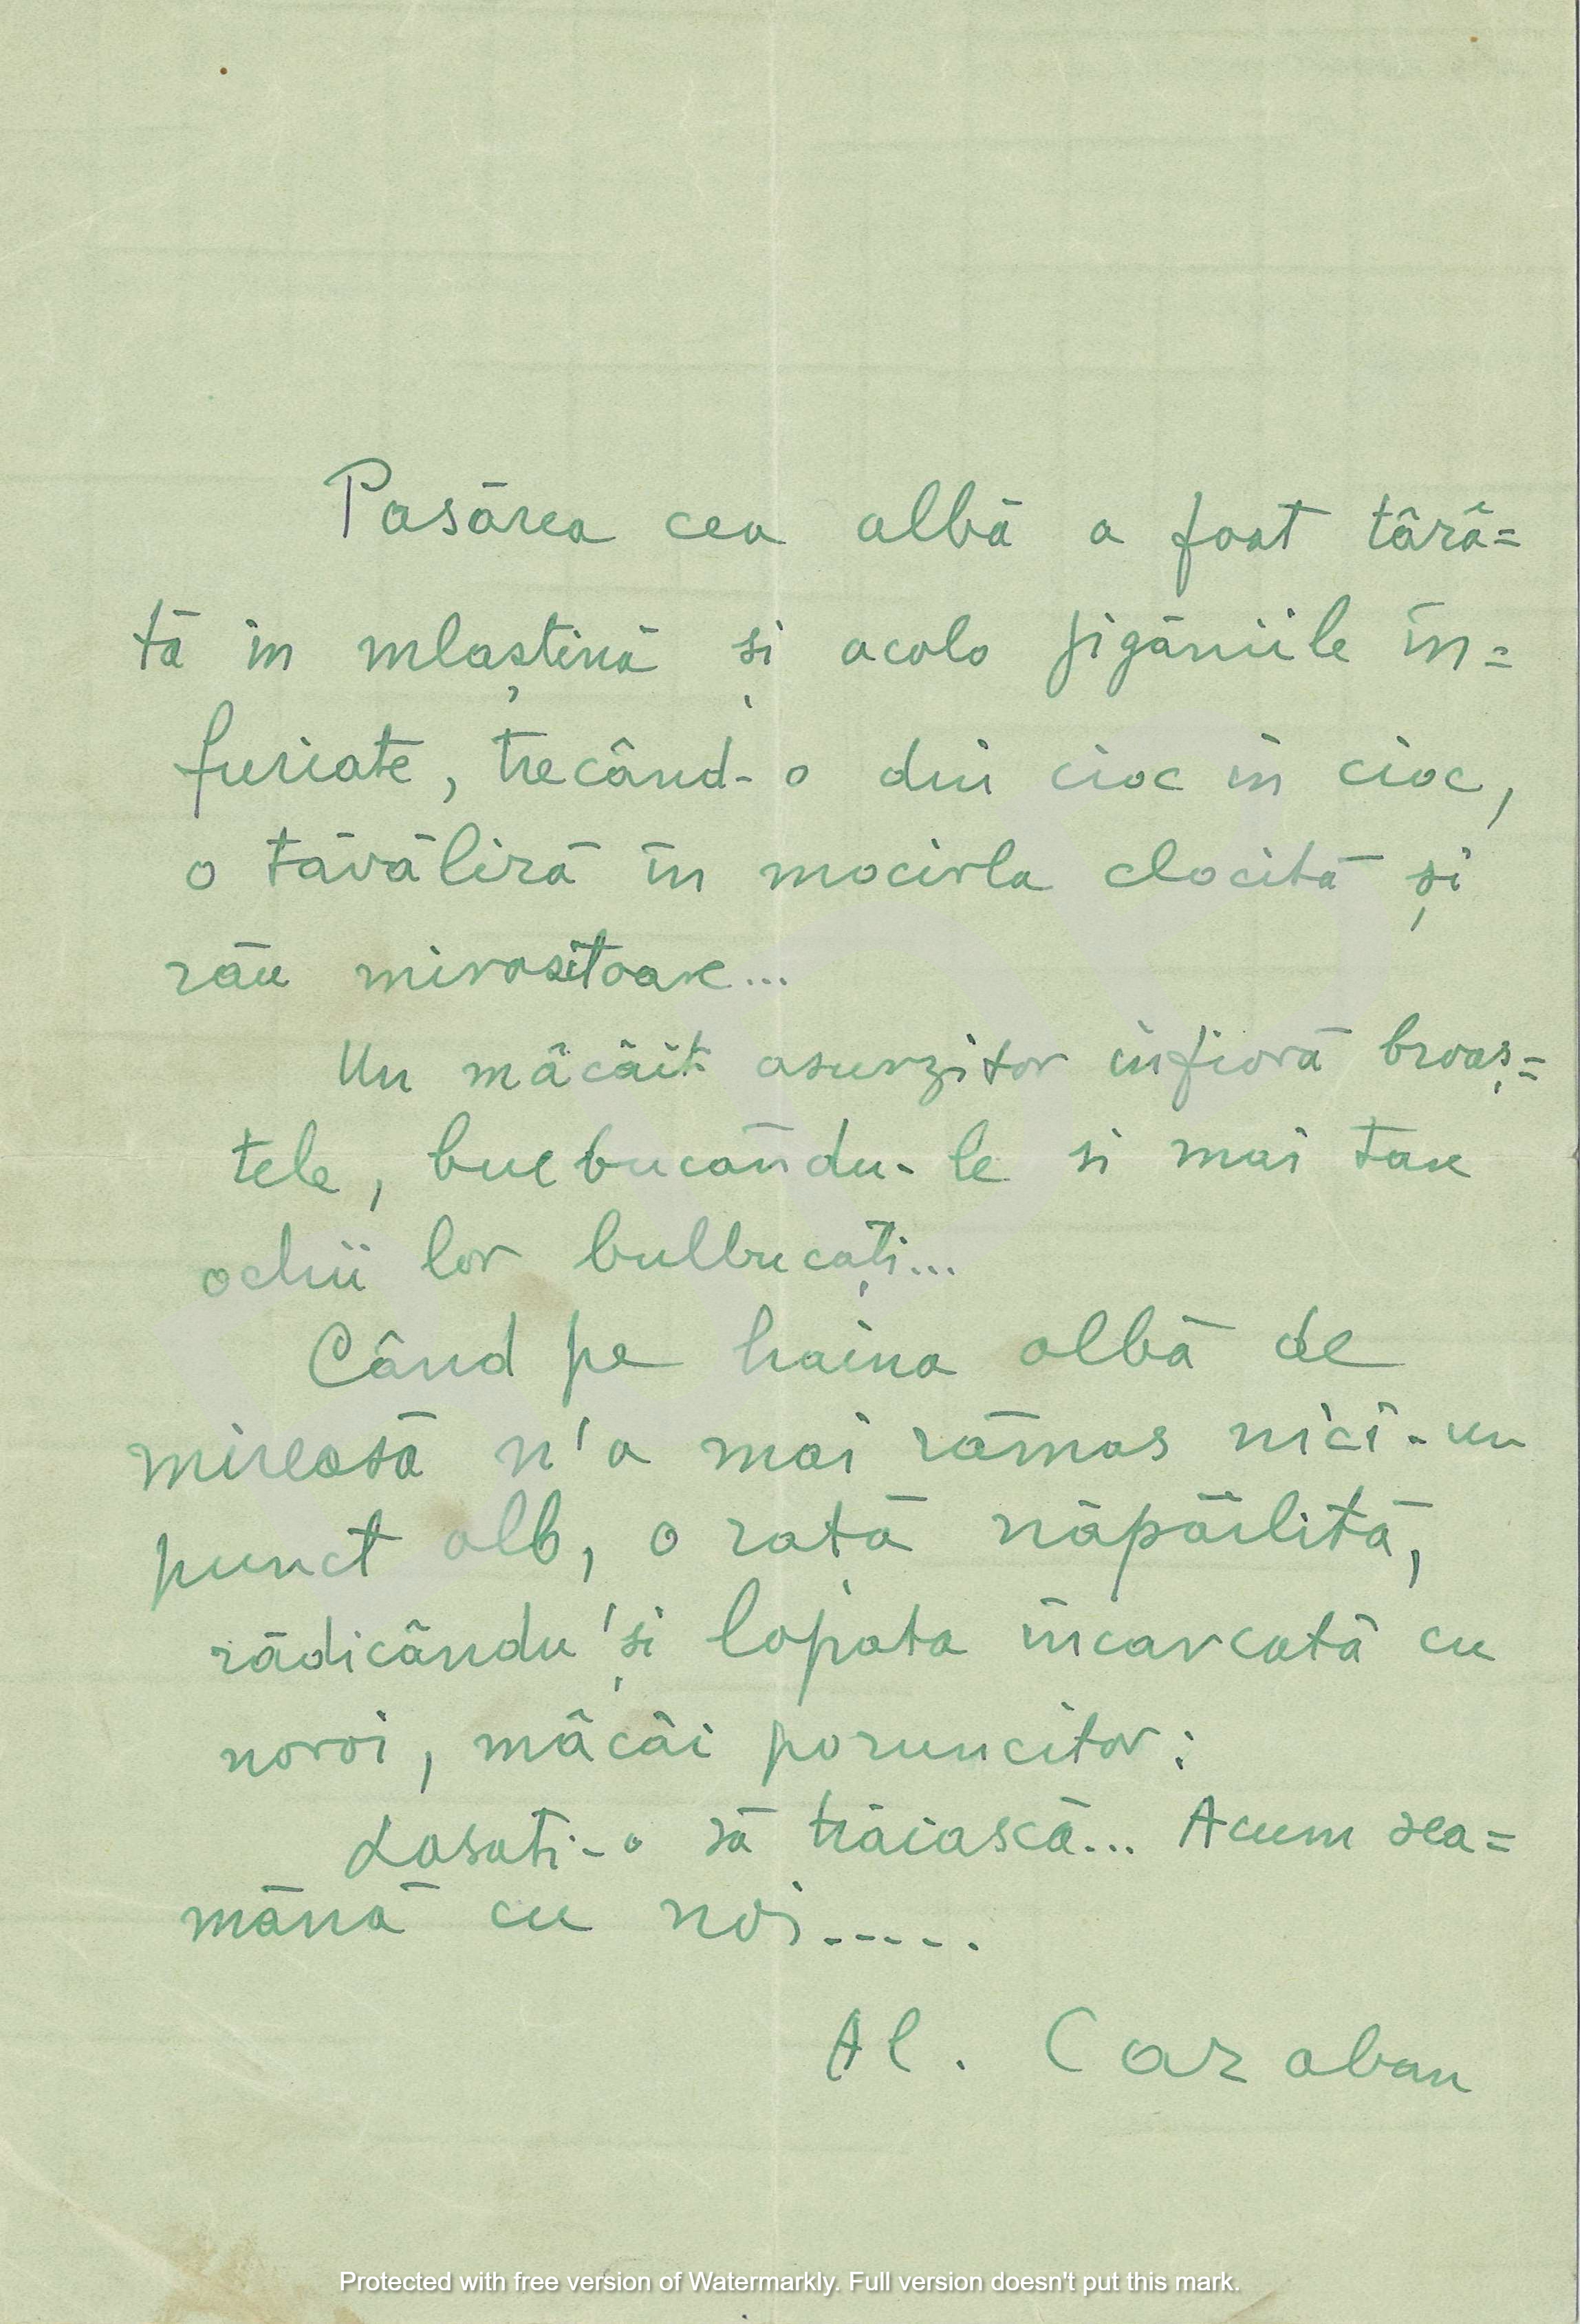 Pasărea cea albă a fost târâ=
tă in mlaștină și acolo jigăniile în=
furiate, trecând-o din cioc in cioc,
o tăvăliră în mocirla clocită și
rău mirositoare...
Un mâcâit asurzitor infioră broaș=
tele, bulbucându-le si mai tare
ochii lor bulbucați...
Când pe haina albă de
mireasă n'a mai rămas nici-un
punct alb, o rată năpârlită,
rădicându'și lopata incarcată cu
noroi, mâcâi poruncitor:
Lasati-o să trăiască... Acum sea=
mănă cu noi.....
Al. Caraban
Protected with free version of Watermarkly. Full version doesn't put this mark.